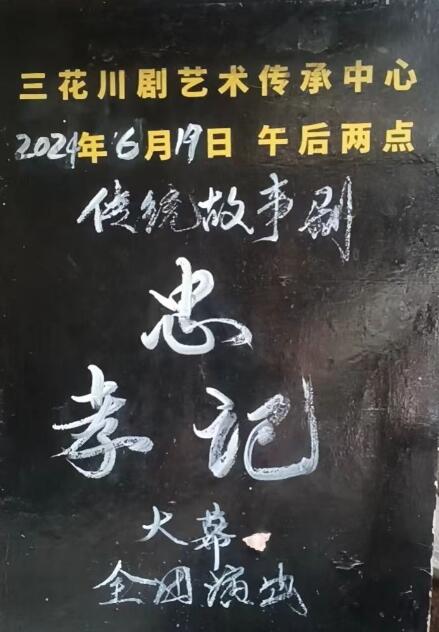 三花川剧艺术传承中心
2024年6月19日 午后两点
传统故事剧
忠
孝记
大幕
全团演出